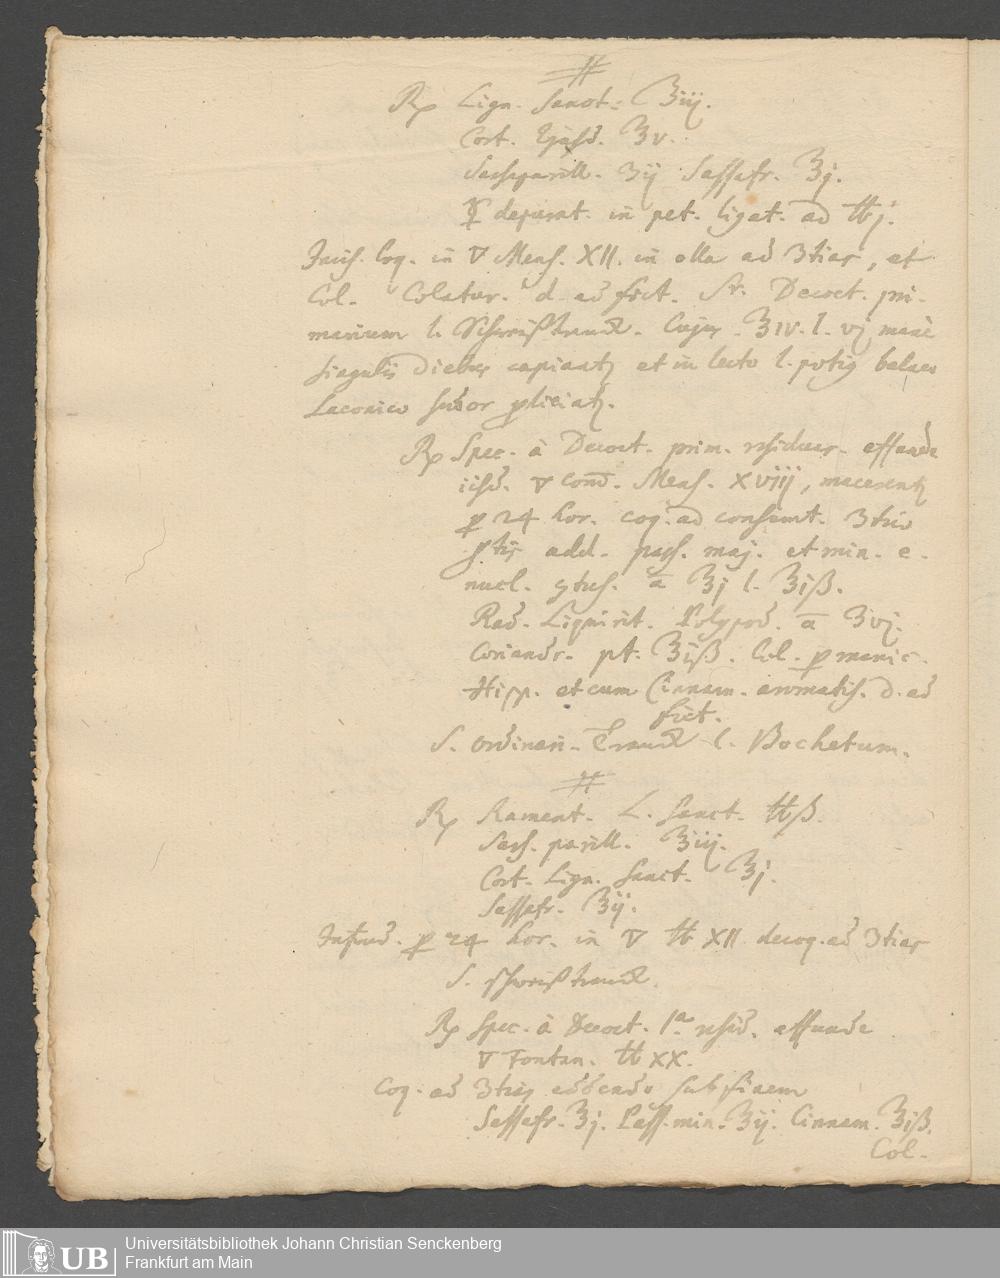 #
℞ Lign. Sanct. ℥iij.
Cort. Ejusd. ℥v.
Sassaparill. ℥ij Sassafr. ℥j.
depurat. in pet. ligat. ad ℔j.
Incis. Coq. in ▽ Mens. XII. in olla ad 3tias, et
Col. Colatur. d. ad fict. St. Decoct. pri-
marium l. Schweißtranck. Cujus ℥iv. l. vj mane
singulis diebus capiantʒ et in lecto l. potiʒ balneo
Laconico sudor pliciatʒ.
℞ Spec. à Decoct. prim. residuas. affunde
iisd. ▽ com̄. Mens. XVIIJ, macerentʒ
p 24 hor. coq. ad consumt. 3tiæ
ptis add. pass. maj. et min. e-
nucl. ꝯtus. ā ℥j l. ℥jß.
Rad. Liquirit. Polypod. ā ℥vj.
Coriandr. pt. ℥jß. Col. p manic.
Hipp. et cum Cinnam. aromatis. D. ad
fict.
S. ordinari- Tranck l. Bochetum.
#
℞ Rament. L. Sanct. ℔ß.
Sass. parill. ℥iij.
Cort. Lign. Sanct. ℥j.
Sassafr. ℥ij.
Infund. p 24 hor. in ▽ ℔ XII decoq. ad 3tias
S. Schweißtranck.
℞ Spec. à Decoct. 1ª resid. affunde
▽ Fontan. ℔ XX.
Coq. ad 3tias addendo sub finem
Sassafr. ℥j. Pass. min. ℥ij. Cinnam. ℥jß.
Col.
Universitätsbibliothek Johann Christian Senckenberg
Frankfurt am Main
UB